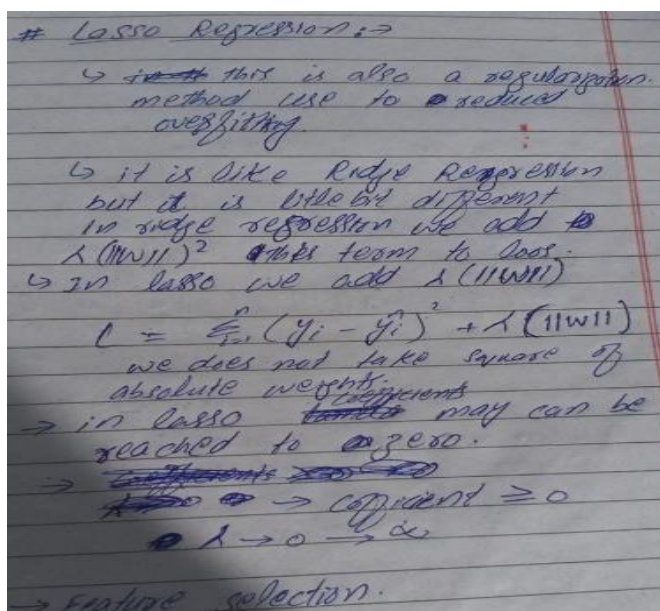 # Lasso Regression :→
↳ this is also a regularization
method use to reduced
overfitting.
↳ it is like Ridge Regression
but it is little bit different
in ridge regression we add
λ(||w||)² this term to loos.
↳ In lasso we add λ(||w||)
L = Σᵢ₌₁ⁿ (yi - ŷi)² + λ(||w||)
we does not take square of
absolute weights.
→ in lasso coefficients may can be
reached to zero.
→
→ cofficient ≥ 0
λ → 0 → ∞
→ Feature selection.